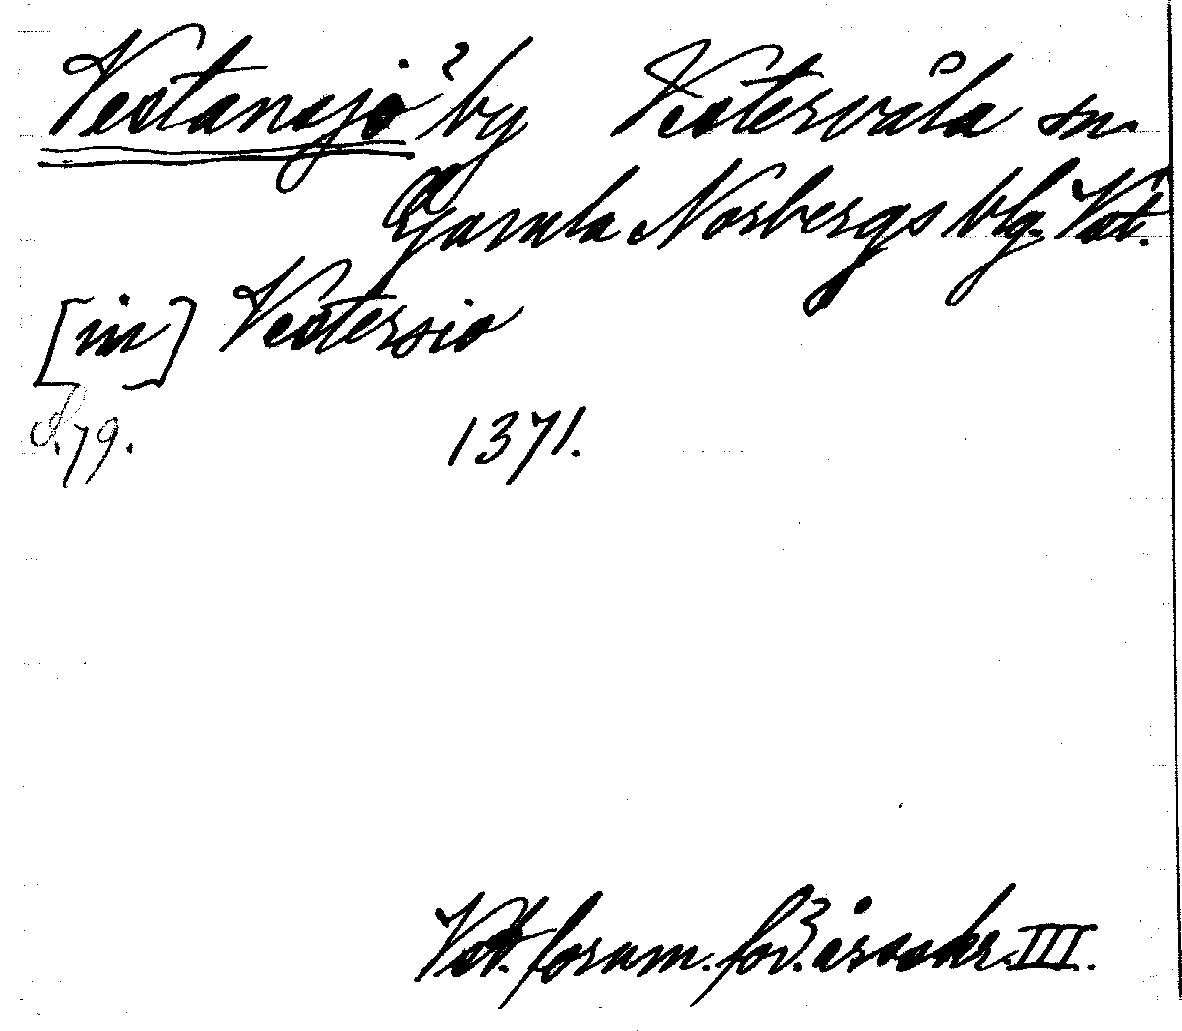 Vestansjö by Vestervåla sn.
Gamla Norbergs blg. Vst.
[in] Vestersio
S. 79. 1371.
Vst. fornm. för. årsskr. III.